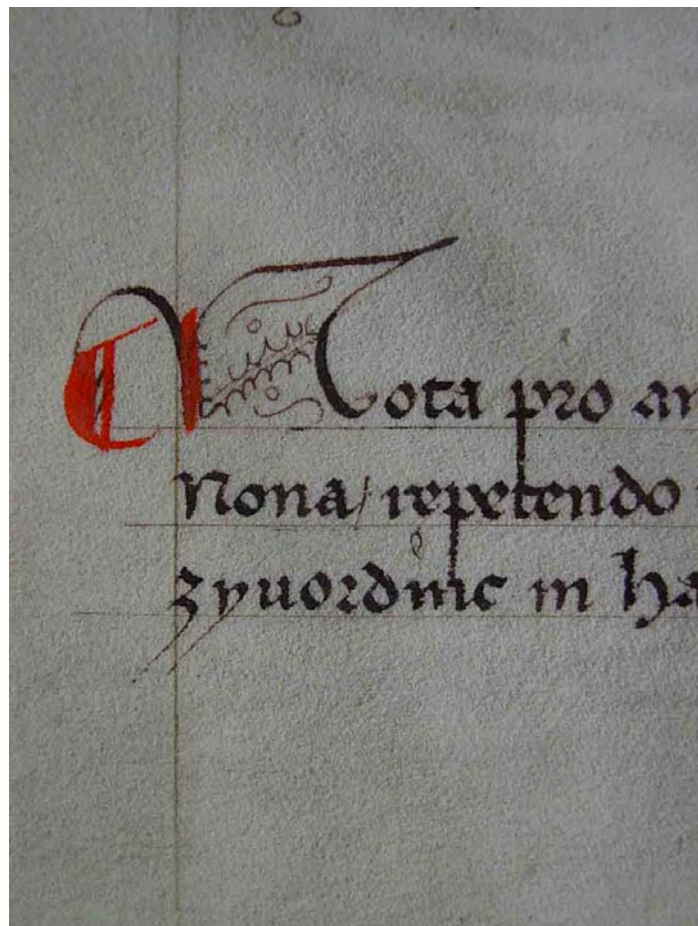 Nota pro an
Nona/ repetendo
zyuordinc in ha